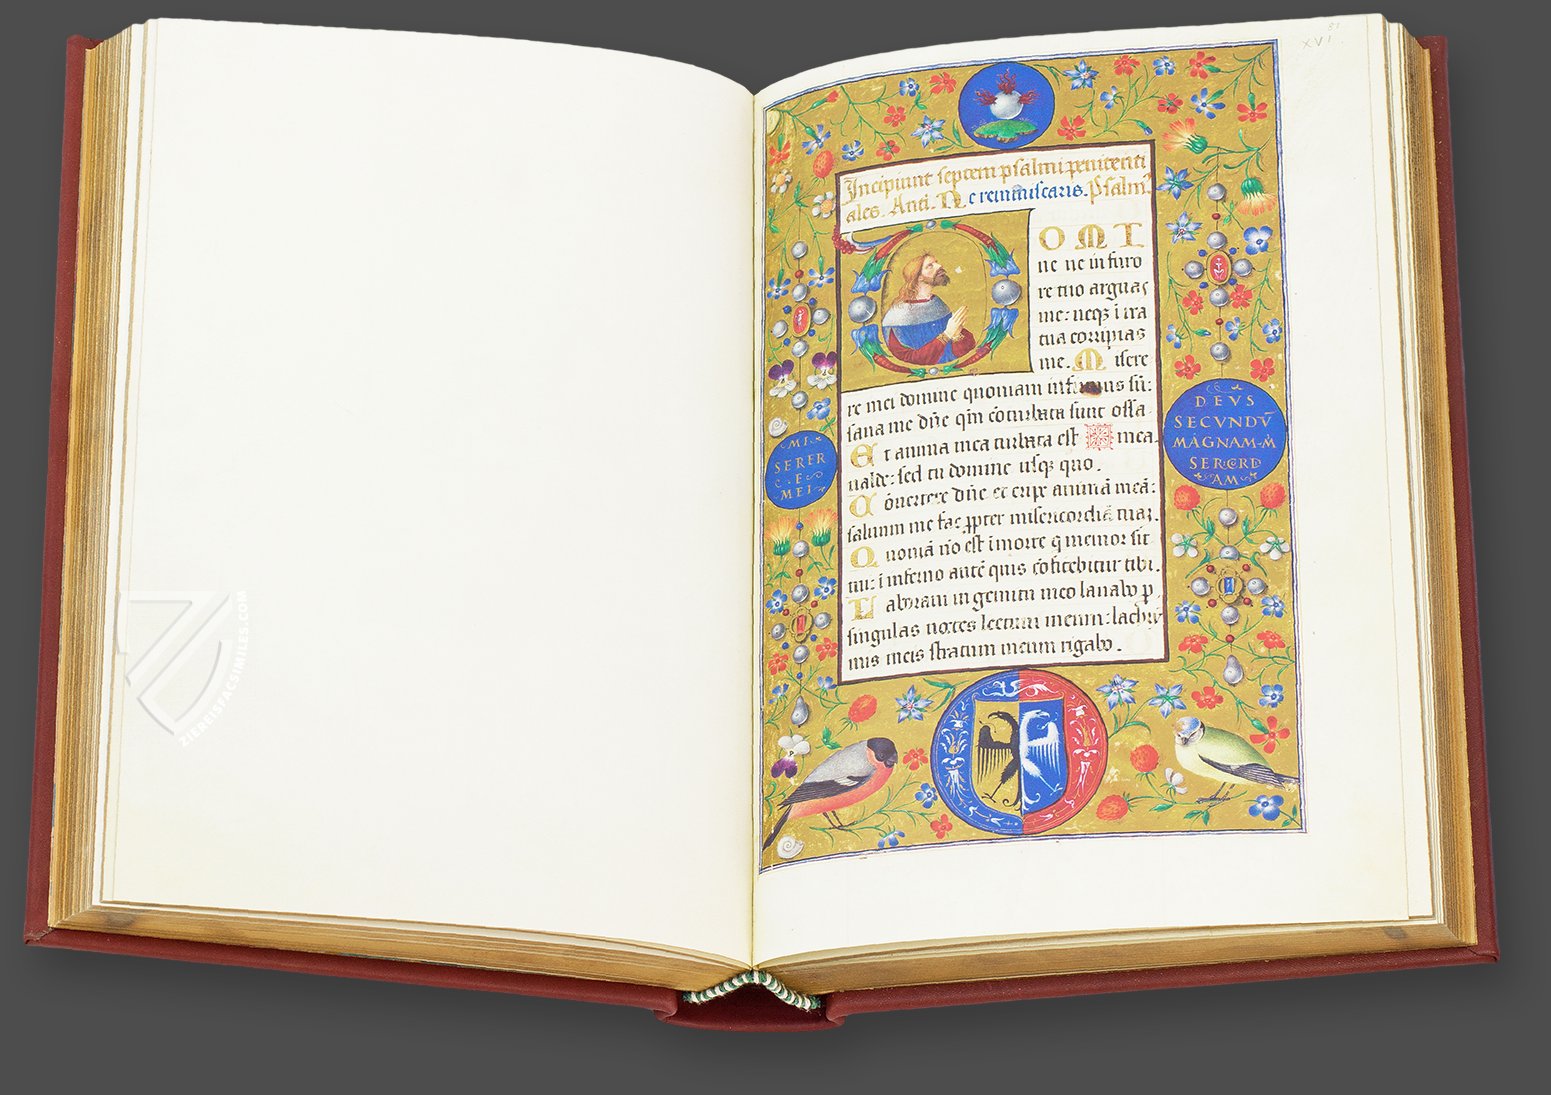 81
XVI
Incipiunt septem psalmi penitenti
ales. Anti. Ne reminiscaris. Psalm̃.
DOMI
ne ne in furo
re tuo arguas
me: neqꝫ ĩ ira
tua corripias
me. Misere
re mei domine quoniam infirmus sũ:
sana me dñe qm̃ cõturbata sunt ossa
mea.
Et anima mea turbata est
ualde: sed tu domine usqꝫ quo.
Cõuertere dñe et eripe animã meã:
saluum me fac ꝓpter misericordiã tuaꝫ.
Quoniã nõ est ĩ morte q memor sit
tui: ĩ inferno autẽ quis cõfitebitur tibi.
Laboraui in gemitu meo lauabo ꝑ
singulas noctes lectum meum: lachri
mis meis stratum meum rigabo.
MI
SERER
E
MEI
DEVS
SECVNDṼ
MAGNAM·M̃
SER:CRD
AM
ZIEREISFACSIMILES.COM